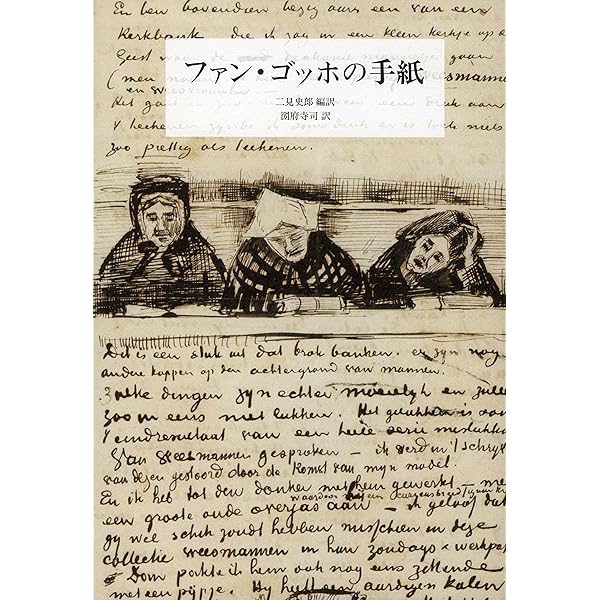 En ben bovendien bezig aan een van een
Kerkbank die ik zag in een klein kerkje op de
Geest
gaan
(men
weesmannen
Het gaat
aan
't teekenen
er is toch niets
zoo prettig als teekenen.
ファン・ゴッホの手紙
二見史郎 編訳
圀府寺司 訳
Dit is een stuk uit dat brok banken. er zyn nog
andere koppen op den achtergrond van mannen.
Zulke dingen zyn echter moeielyk en zullen
zoo in eens niet lukken. Het gelukken is soms
't eindresultaat van een heele serie mislukken
Van weesmannen gesproken – ik werd in 't schryven
van dezen gestoord door de komst van myn model.
En ik heb tot den donker met hem gewerkt –
waardoor hy een
een groote oude overjas aan – ik geloof dat
gy wel schik zoudt hebben misschien in deze
collectie weesmannen in hun zondags & werkpak
Dom pakte ik hem ook nog eens zittende
met een pypje. Hy heeft een aardigen kalen